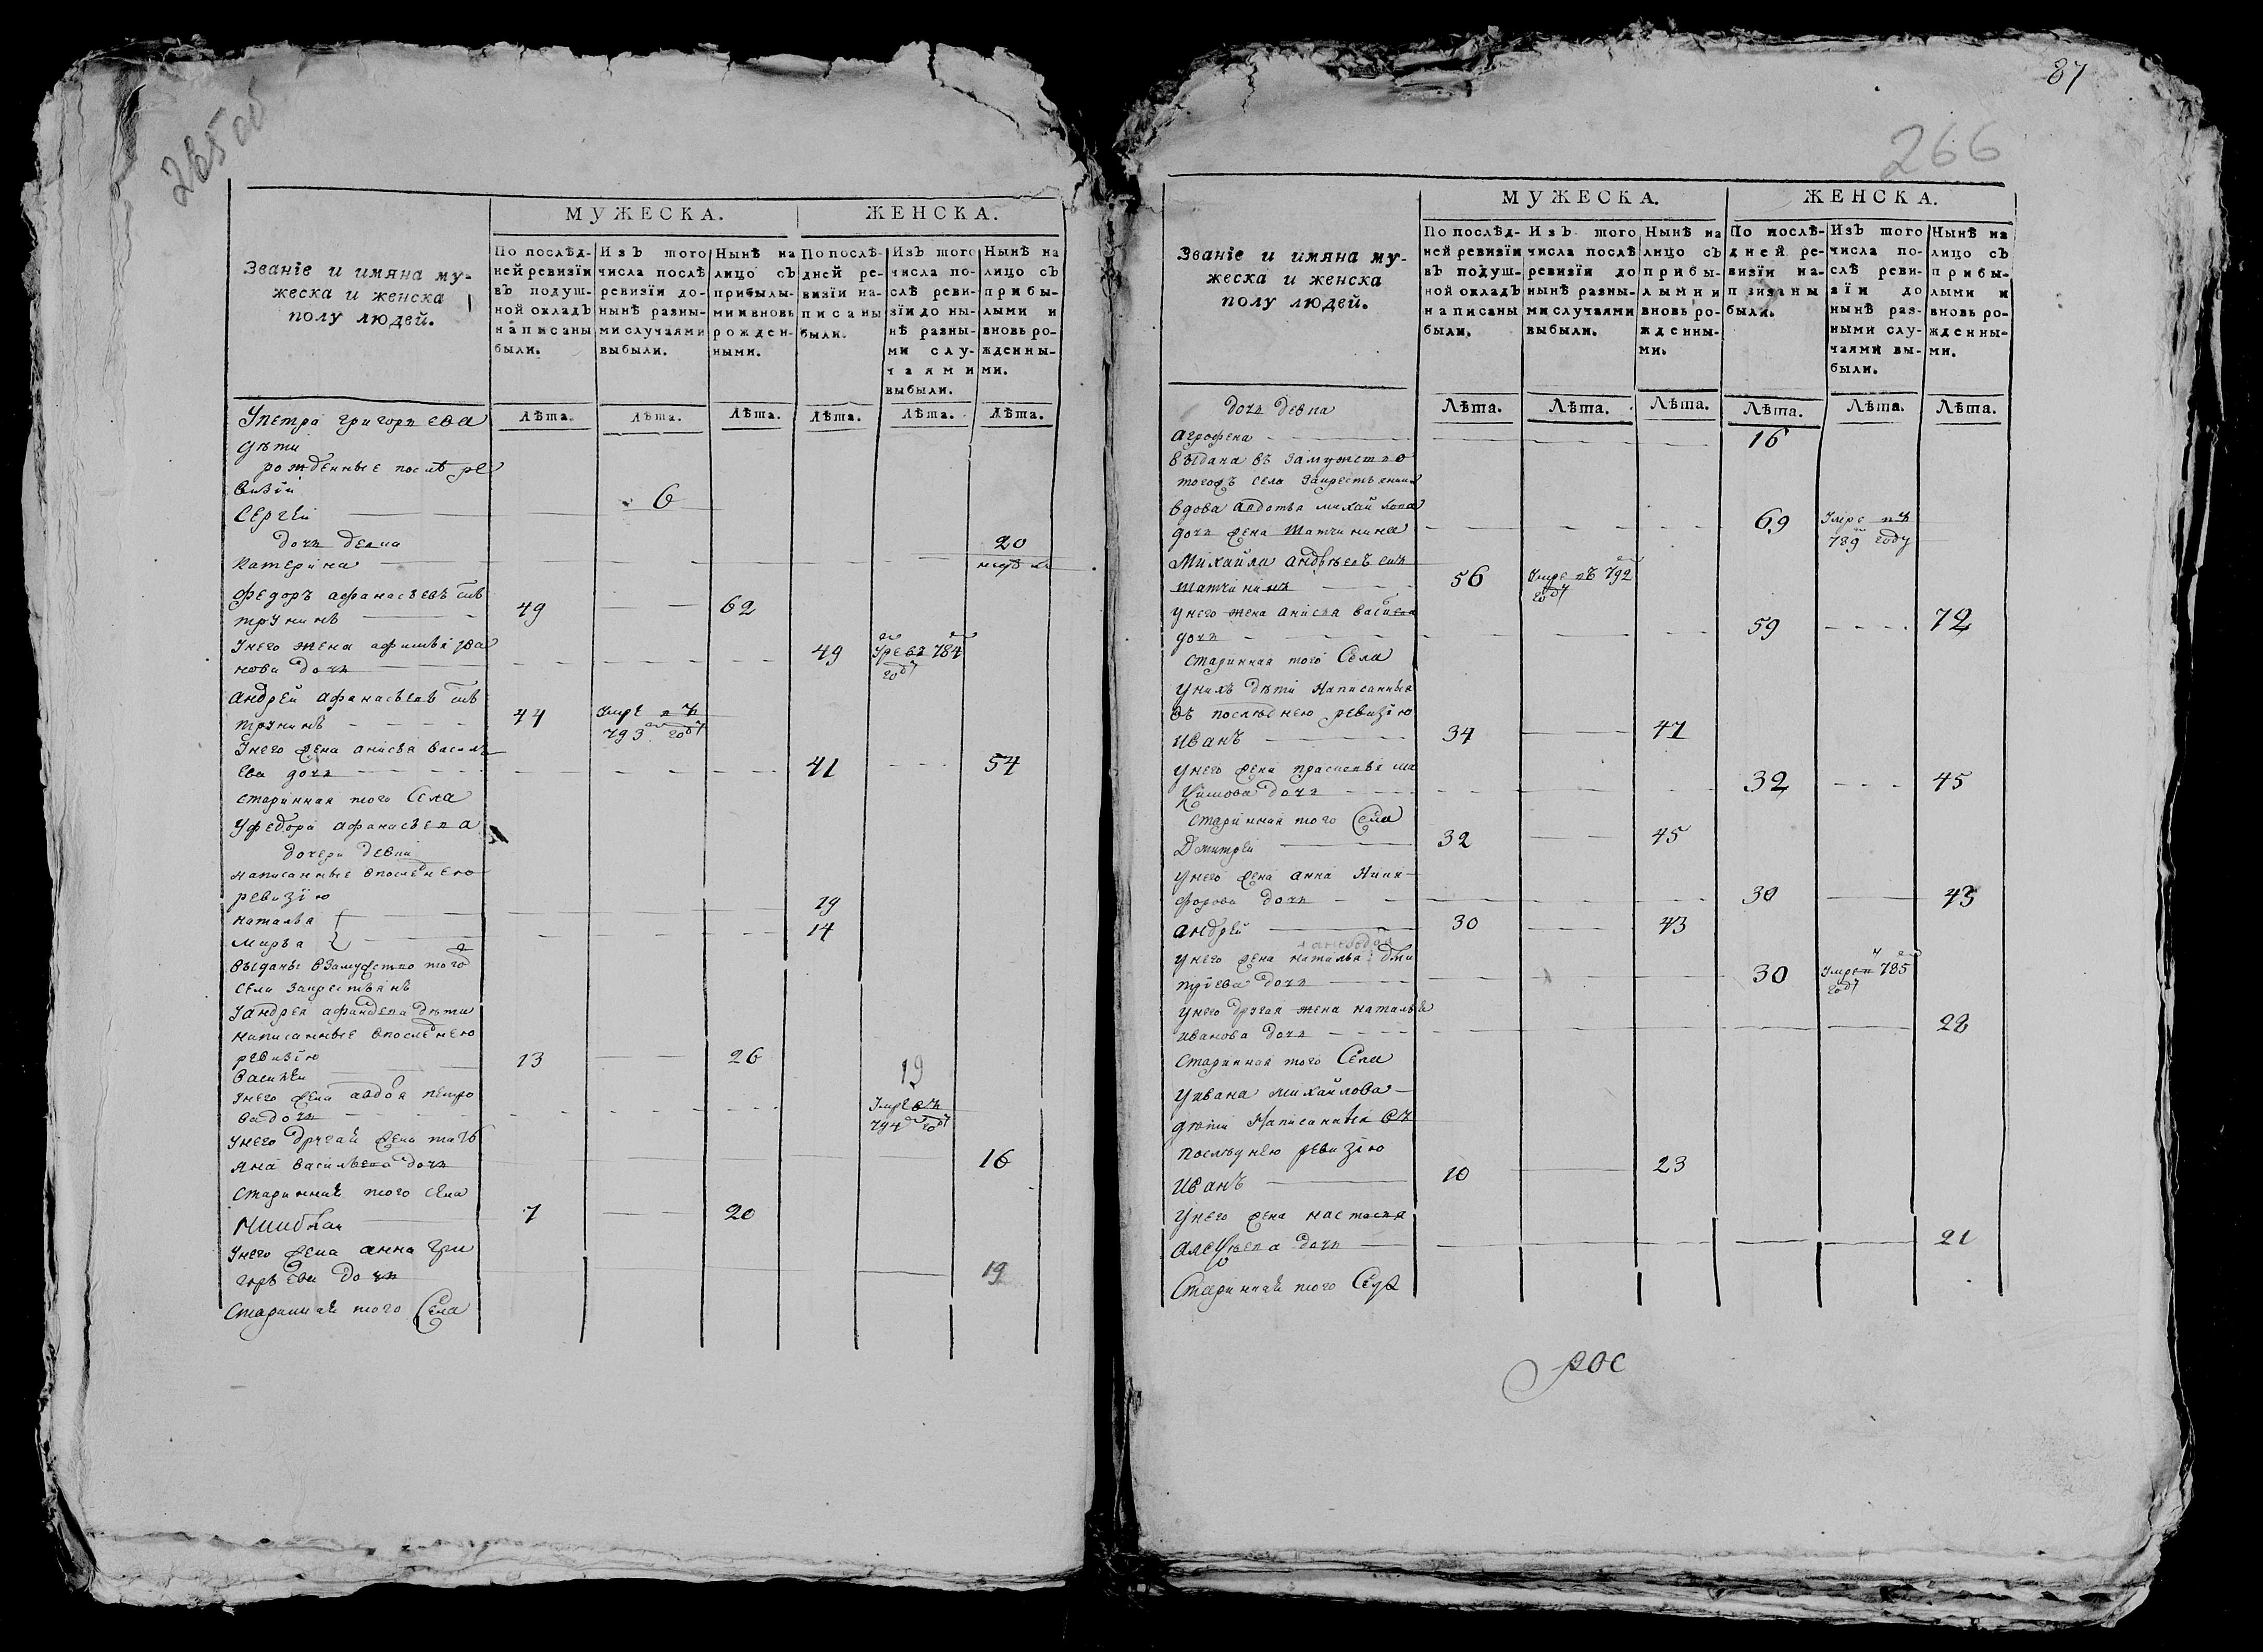 265 об
МУЖЕСКА.
ЖЕНСКА.
Званіе и имяна му-
жеска и женска
полу людей.
По послѣд-
ней ревизіи
въ подуш-
ной окладъ
написаны
были.
Изъ того
числа послѣ
ревизіи до-
нынѣ разны-
ми случаями
выбыли.
Нынѣ на
лицо съ
прибылы-
ми и вновь
рожден-
ными.
По послѣ-
дней ре-
визіи на-
писаны
были.
Изъ того
числа по-
слѣ реви-
зіи до ны-
нѣ разны-
ми слу-
чаями
выбыли.
Нынѣ на
лицо съ
прибы-
лыми и
вновь ро-
жденны-
ми.
Лѣта. Лѣта. Лѣта. Лѣта. Лѣта. Лѣта.
Упетра григорьева
дѣти
рожденные послѣ ре
визіи
Сергей 6
дочь девка
Катерина 20
Федоръ афанасьевъ сынъ
трунинъ 49 62
Унего жена афимья
нова дочь 49 784 году
андрей афанасьевъ сынъ
трунинъ 44 Умре въ 793 году
Унего жена анисья василь
ева дочь 41 54
старинная того Села
Уфедора афанасьева
дочери девки
написанные впоследнею
ревизію
наталья 19
марья 14
выданы взамужство того
села закрестьянъ
Уандрея дѣти
написанные впоследнею
ревизію
Василей 13 26
Унего жена авдотья петро
ва дочь 19 Умре въ 794 году
Унего другая жена татья
яна васильева дочь 16
Старинная того села
7 20
Унего жена анна гри
горьева дочь 19
Старинная того Села
87
266
МУЖЕСКА.
ЖЕНСКА.
Званіе и имяна му-
жеска и женска
полу людей.
По послѣд-
ней ревизіи
въ подуш-
ной окладъ
написаны
были.
Изъ того
числа послѣ
ревизіи до
нынѣ разны-
ми случаями
выбыли.
Нынѣ на
лицо съ
прибы-
лыми и
вновь ро-
жденны-
ми.
По послѣ-
дней ре-
визіи на-
писаны
были.
Изъ того
числа по-
слѣ реви-
зіи до
нынѣ раз-
ными слу-
чаями вы-
были.
Нынѣ на
лицо съ
прибы-
лыми и
вновь ро-
жденны-
ми.
дочь девка
Лѣта. Лѣта. Лѣта. Лѣта. Лѣта. Лѣта.
агрофена 16
выдана въ замужство
тогожъ села
вдова авдотья михайлова
дочь жена татчинина 69 Умре въ 789 году
Михайла андреевъ сынъ
татчининъ 56 Умре въ 792 году
унего жена анисья васильева
дочь 59 72
старинная того Села
унихъ дѣти написанные
въ последнею ревизію
иванъ 34 47
унего жена прасковья ма
кимова дочь 32 45
старинная того Села
Дмитрей 32 45
унего жена анна Ники
форова дочь 30 43
андрей 30 43
унего жена наталья дми
тріева дочь 30 Умре 785 году
унего другая жена наталья
иванова дочь 28
старинная того Села
уивана михайлова
дѣти написанныя въ
последнею ревизію
иванъ 10 23
унего жена настасья
дочь 21
Старинная того Села
рос